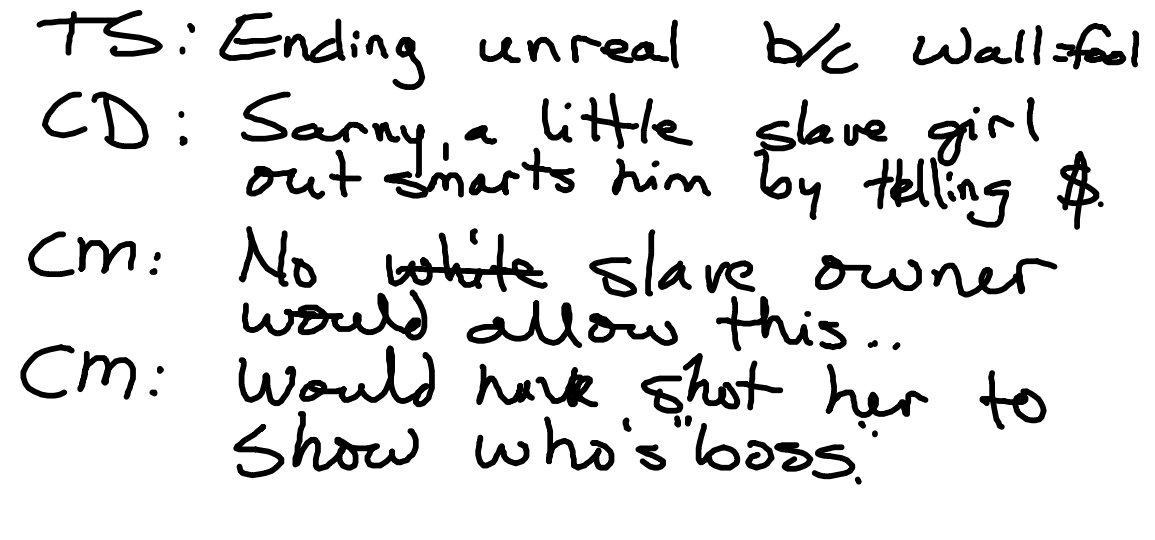 TS: Ending unreal b/c Wall=fool
CD: Sarny, a little slave girl
out smarts him by telling $.
CM: No white slave owner
would allow this..
CM: Would have shot her to
show who's "boss."